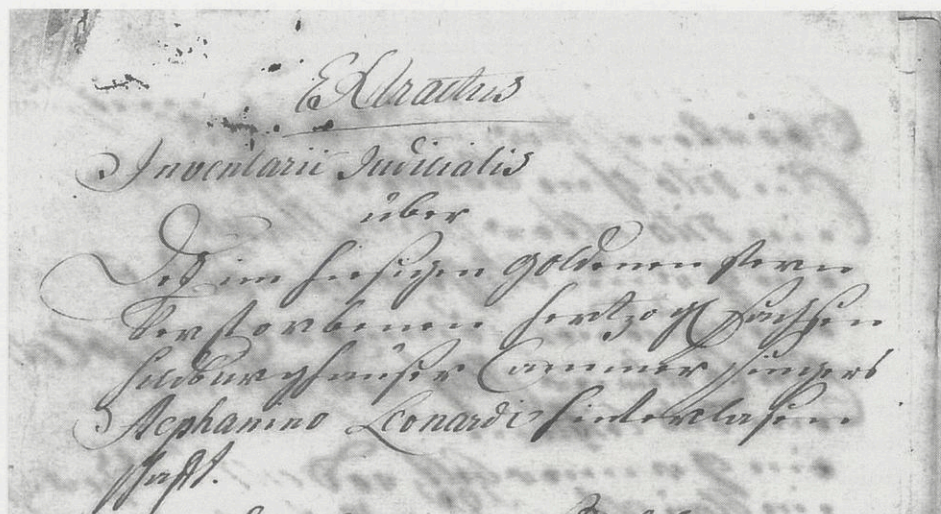 Extractus
Inventarii Judicialis
über
Deß im hiesigen goldenen Stern
Verstorbenen Hertzogl. Sachsen
Hildburghaußer Cammer Singers
Stephanino Leonardi Hinterlasen
schafft.